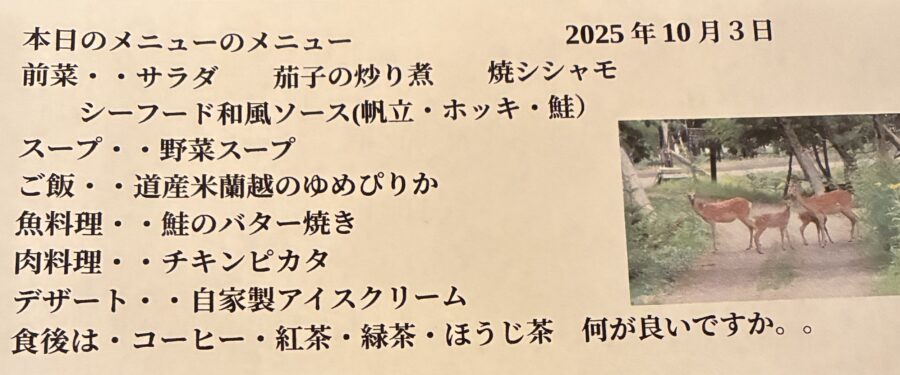 本日のメニューのメニュー　2025年10月3日
前菜・・サラダ　茄子の炒り煮　焼シシャモ
シーフード和風ソース(帆立・ホッキ・鮭）
スープ・・野菜スープ
ご飯・・道産米蘭越のゆめぴりか
魚料理・・鮭のバター焼き
肉料理・・チキンピカタ
デザート・・自家製アイスクリーム
食後は・コーヒー・紅茶・緑茶・ほうじ茶　何が良いですか。。